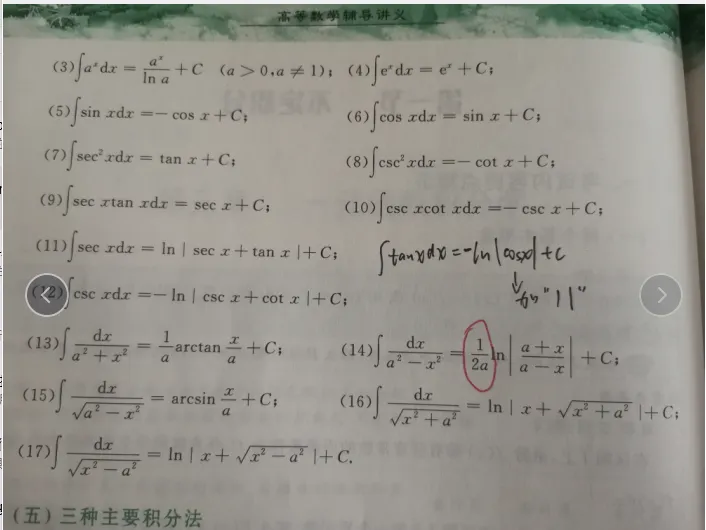 高等数学辅导讲义
(3)∫aˣdx = aˣ/ln a + C (a > 0, a ≠ 1); (4)∫eˣdx = eˣ + C;
(5)∫sin xdx = − cos x + C; (6)∫cos xdx = sin x + C;
(7)∫sec²xdx = tan x + C; (8)∫csc²xdx = − cot x + C;
(9)∫sec xtan xdx = sec x + C; (10)∫csc xcot xdx = − csc x + C;
(11)∫sec xdx = ln | sec x + tan x | + C; ∫tanxdx = −ln|cosx| + C
(12)∫csc xdx = − ln | csc x + cot x | + C; ↓ "| |"
(13)∫dx/(a² + x²) = (1/a)arctan(x/a) + C; (14)∫dx/(a² − x²) = (1/2a)ln|(a + x)/(a − x)| + C;
(15)∫dx/√(a² − x²) = arcsin(x/a) + C; (16)∫dx/√(x² + a²) = ln | x + √(x² + a²) | + C;
(17)∫dx/√(x² − a²) = ln | x + √(x² − a²) | + C.
(五)三种主要积分法